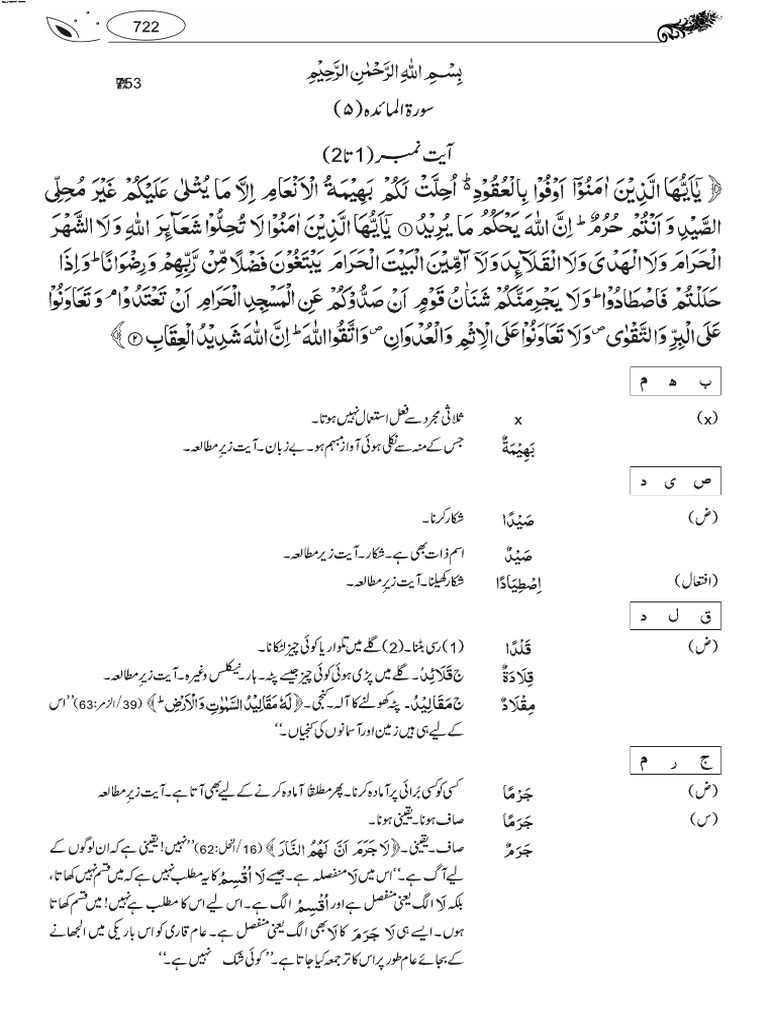 722
753
بِسْمِ اللّٰهِ الرَّحْمٰنِ الرَّحِيْمِ
سورۃ المائدہ (۵)
آیت نمبر (1 تا 2)
﴿ يٰٓاَيُّهَا الَّذِيْنَ اٰمَنُوْٓا اَوْفُوْا بِالْعُقُوْدِ ؕ اُحِلَّتْ لَكُمْ بَهِيْمَةُ الْاَنْعَامِ اِلَّا مَا يُتْلٰى عَلَيْكُمْ غَيْرَ مُحِلِّى
الصَّيْدِ وَ اَنْتُمْ حُرُمٌ ؕ اِنَّ اللّٰهَ يَحْكُمُ مَا يُرِيْدُ ۱ يٰٓاَيُّهَا الَّذِيْنَ اٰمَنُوْا لَا تُحِلُّوْا شَعَآىِٕرَ اللّٰهِ وَ لَا الشَّهْرَ
الْحَرَامَ وَ لَا الْهَدْيَ وَ لَا الْقَلَآىِٕدَ وَ لَاۤ آٰمِّيْنَ الْبَيْتَ الْحَرَامَ يَبْتَغُوْنَ فَضْلًا مِّنْ رَّبِّهِمْ وَ رِضْوَانًا ؕ وَ اِذَا
حَلَلْتُمْ فَاصْطَادُوْا ؕ وَ لَا يَجْرِمَنَّكُمْ شَنَاٰنُ قَوْمٍ اَنْ صَدُّوْكُمْ عَنِ الْمَسْجِدِ الْحَرَامِ اَنْ تَعْتَدُوْا ۘ وَ تَعَاوَنُوْا
عَلَى الْبِرِّ وَ التَّقْوٰى ۪ وَ لَا تَعَاوَنُوْا عَلَى الْاِثْمِ وَ الْعُدْوَانِ ۪ وَ اتَّقُوا اللّٰهَ ؕ اِنَّ اللّٰهَ شَدِيْدُ الْعِقَابِ ۲ ﴾
ب ھ م
(x) x ثلاثی مجرد سے فعل استعمال نہیں ہوتا۔
بَهِيْمَةٌ جس کے منہ سے نکلی ہوئی آواز مبہم ہو۔ بے زبان۔ آیت زیر مطالعہ۔
ص ی د
(ض) صَيْدًا شکار کرنا۔
صَيْدٌ اسم ذات بھی ہے۔ شکار۔ آیت زیر مطالعہ۔
(افتعال) اِصْطِيَادًا شکار کھیلنا۔ آیت زیرِ مطالعہ۔
ق ل د
(ض) قَلْدًا (1) رسی بٹنا۔ (2) گلے میں تلوار یا کوئی چیز لٹکانا۔
قِلَادَةٌ ج قَلَائِدُ۔ گلے میں پڑی ہوئی کوئی چیز جیسے پٹہ۔ ہار۔ نیکلس وغیرہ۔ آیت زیرِ مطالعہ۔
مِقْلَادٌ ج مَقَالِيْدُ۔ پٹہ کھولنے کا آلہ۔ کنجی۔ ﴿لَهٗ مَقَالِيْدُ السَّمٰوٰتِ وَ الْاَرْضِ ؕ ﴾ (39/الزمر:63) ’’اس
کے لیے ہی ہیں زمین اور آسمانوں کی کنجیاں۔‘‘
ج ر م
(ض) جَرْمًا کسی کو کسی بُرائی پر آمادہ کرنا۔ پھر مطلقًا آمادہ کرنے کے لیے بھی آتا ہے۔ آیت زیر مطالعہ
(س) جَرَمًا صاف ہونا۔ یقینی ہونا۔
جَرَمٌ صاف۔ یقینی۔ ﴿لَا جَرَمَ اَنَّ لَهُمُ النَّارَ ﴾ (16/النحل:62) ’’نہیں! یقینی ہے کہ ان لوگوں کے
لیے آگ ہے۔‘‘ اس میں لَا منفصلہ ہے۔ جیسے لَا اُقْسِمُ کا یہ مطلب نہیں ہے کہ میں قسم نہیں کھاتا،
بلکہ لَا الگ یعنی منفصل ہے اور اُقْسِمُ الگ ہے۔ اس لیے اس کا مطلب ہے نہیں! میں قسم کھاتا
ہوں۔ ایسے ہی لَا جَرَمَ کا لَا بھی الگ یعنی منفصل ہے۔ عام قاری کو اس باریکی میں الجھانے
کے بجائے عام طور پر اس کا ترجمہ کیا جاتا ہے۔ ’’کوئی شک نہیں ہے۔‘‘